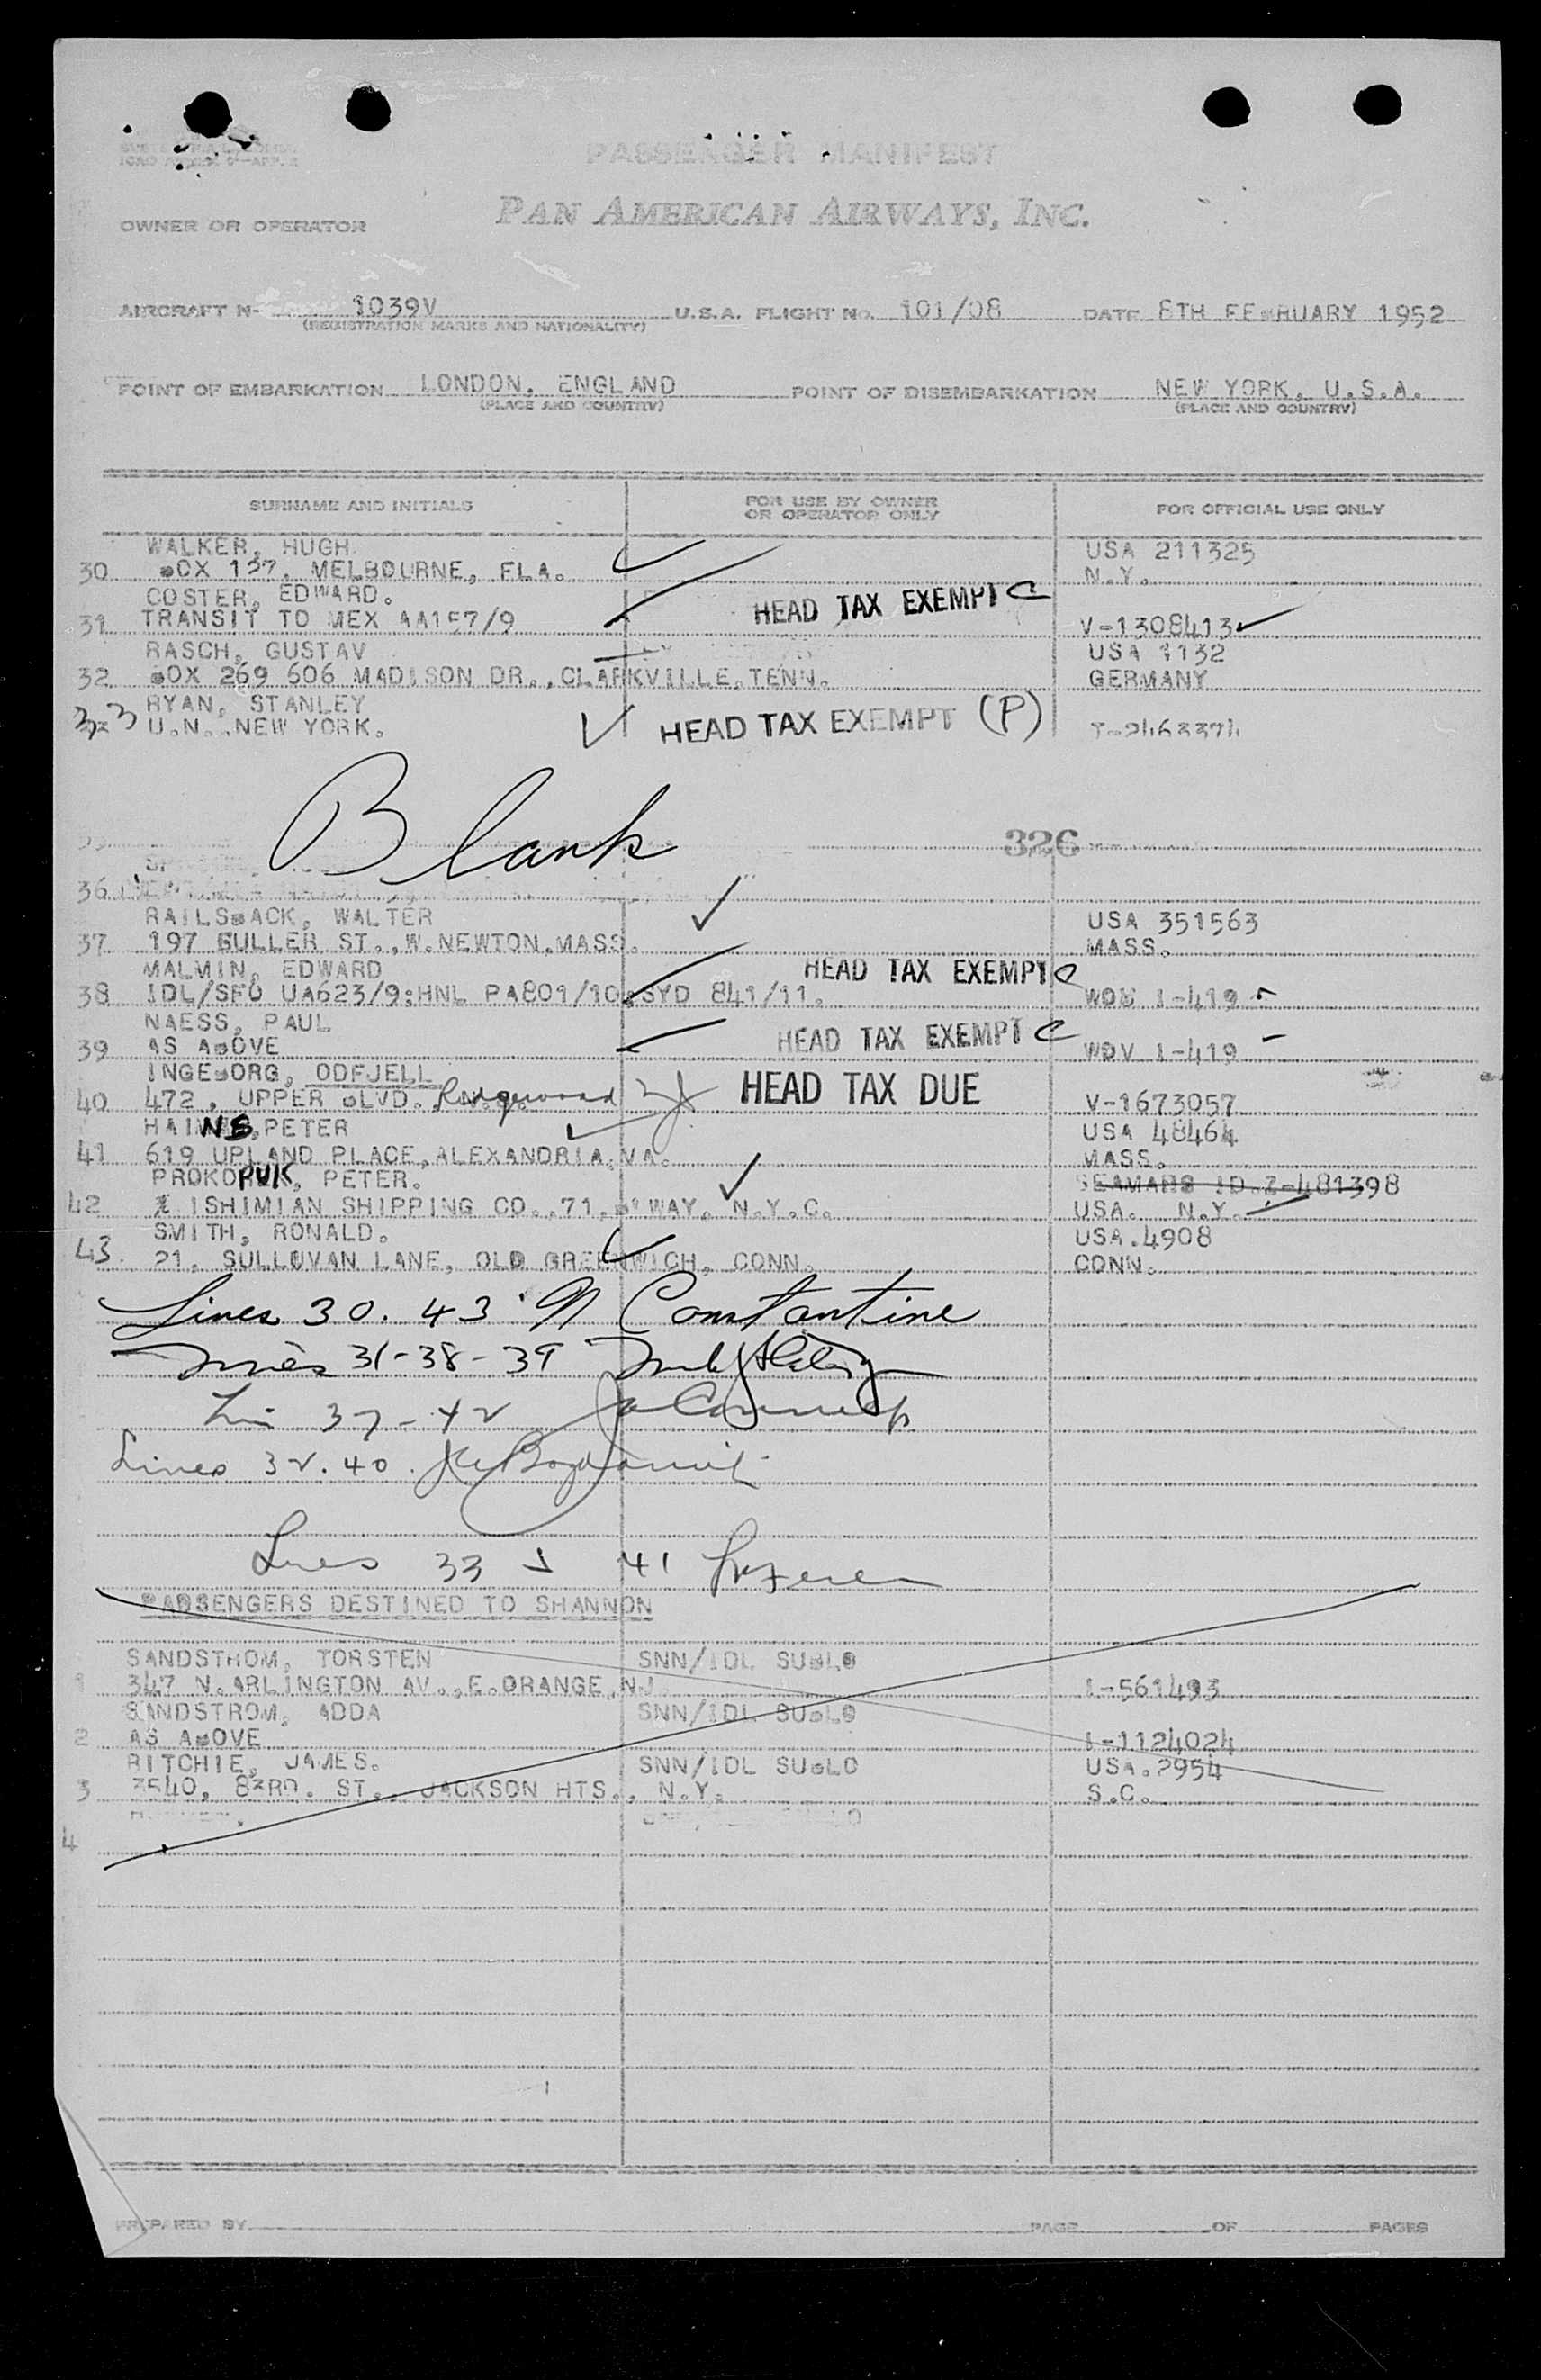 PASSENGER MANIFEST
OWNER OR OPERATOR PAN AMERICAN AIRWAYS, INC.
AIRCRAFT N- 1039V U.S.A. FLIGHT NO. 101/08 DATE 8TH FEBRUARY 1952
(REGISTRATION MARKS AND NATIONALITY)
POINT OF EMBARKATION LONDON, ENGLAND POINT OF DISEMBARKATION NEW YORK, U.S.A.
(PLACE AND COUNTRY) (PLACE AND COUNTRY)
SURNAME AND INITIALS FOR USE BY OWNER OR OPERATOR ONLY FOR OFFICIAL USE ONLY
WALKER, HUGH USA 211325
30 BOX 137, MELBOURNE, FLA. N.Y.
COSTER, EDWARD. HEAD TAX EXEMPT C
31 TRANSIT TO MEX AA157/9 V-1308413
RASCH, GUSTAV USA 1132
32 BOX 269 606 MADISON DR., CLARKVILLE, TENN. GERMANY
RYAN, STANLEY
33 U.N. NEW YORK. HEAD TAX EXEMPT (P) T-2463374
Blank
326
36
RAILSBACK, WALTER USA 351563
37 197 FULLER ST., W.NEWTON, MASS. MASS.
MALMIN, EDWARD HEAD TAX EXEMPT C
38 IDL/SFO UA623/9:HNL PA801/10:SYD 841/11. WDV 1-419
NAESS, PAUL HEAD TAX EXEMPT C
39 AS ABOVE WDV 1-419
INGEBORG, ODFJELL HEAD TAX DUE
40 472, UPPER BLVD. Ridgewood V-1673057
HAINES, PETER USA 48464
41 619 UPLAND PLACE, ALEXANDRIA, VA. MASS.
PROKOPUK, PETER. SEAMANS ID.Z-481398
42 % ISHIMIAN SHIPPING CO.,71, B'WAY, N.Y.C. USA. N.Y.
SMITH, RONALD. USA.4908
43. 21, SULLUVAN LANE, OLD GREENWICH, CONN. CONN.
Lines 30. 43 N Constantine
Lines 31-38-39
37-42
Lines 32. 40.
Lines 33 41
PASSENGERS DESTINED TO SHANNON
SANDSTROM, TORSTEN SNN/IDL SUBLO
1 347 N.ARLINGTON AV.,E.ORANGE,NJ. I-561493
SANDSTROM, ADDA SNN/IDL SUBLO
2 AS ABOVE I-1124024
RITCHIE, JAMES. SNN/IDL SUBLO USA.2954
3 3540, 83RD. ST., JACKSON HTS., N.Y. S.C.
4
PREPARED BY PAGE OF PAGES